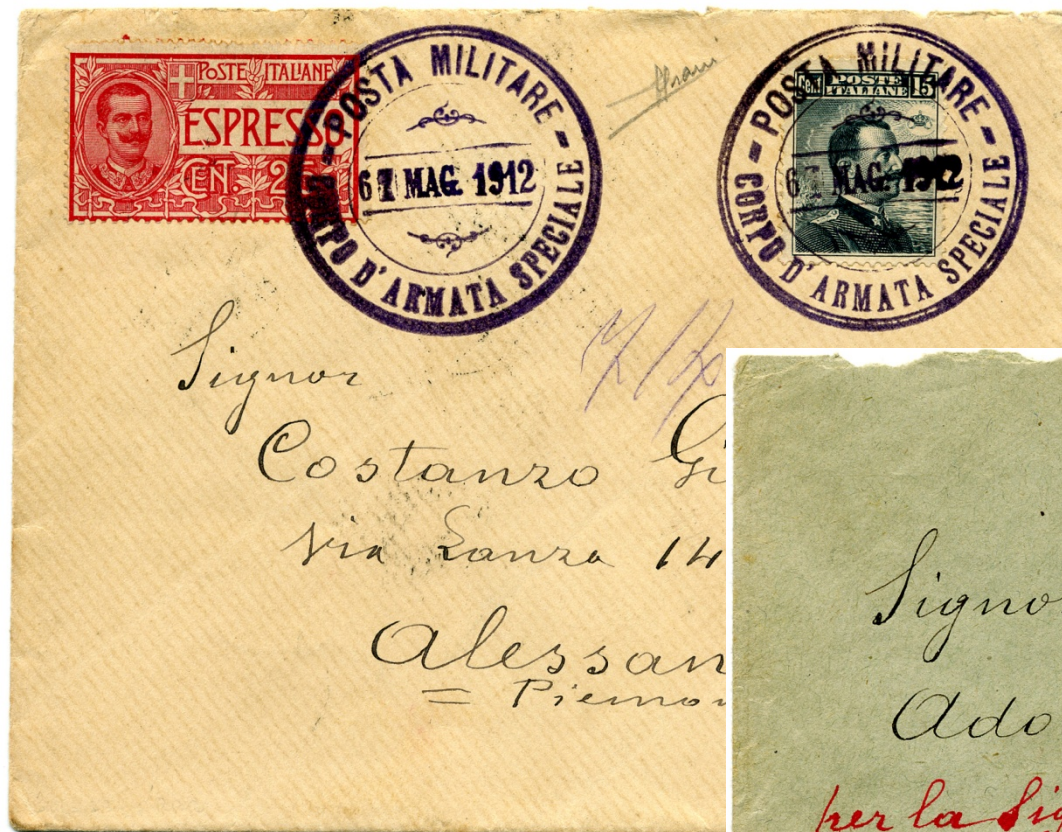 POSTE ITALIANE
ESPRESSO
CENT. 25
POSTA MILITARE
MAG. 1912
CORPO D'ARMATA SPECIALE
Cent. POSTE ITALIANE 15
POSTA MILITARE
MAG. 1912
CORPO D'ARMATA SPECIALE
Signor
Costanzo Gi
Via Lanza 14
Alessan
= Piemon
Signo
Ado
per la Sig